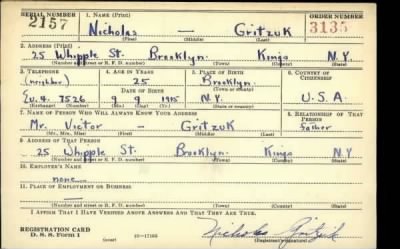 SERIAL NUMBER 1. NAME (Print) ORDER NUMBER
2157 Nicholas — Gritzuk 3135
(First) (Middle) (Last)
2. ADDRESS (Print)
25 Whipple St. Brooklyn. Kings N.Y.
(Number and street or R. F. D. number) (Town) (County) (State)
3. TELEPHONE 4. AGE IN YEARS 5. PLACE OF BIRTH 6. COUNTRY OF CITIZENSHIP
(neighbor) 25 Brooklyn.
DATE OF BIRTH (Town or county)
Ev. 4. 7526 9 9 1915 N.Y. U.S.A
(Exchange) (Number) (Mo.) (Day) (Yr.) (State or country)
7. NAME OF PERSON WHO WILL ALWAYS KNOW YOUR ADDRESS 8. RELATIONSHIP OF THAT PERSON
Mr. Victor — Gritzuk father
(Mr., Mrs., Miss) (First) (Middle) (Last)
9. ADDRESS OF THAT PERSON
25 Whipple St. Brooklyn. Kings N.Y
(Number and street or R. F. D. number) (Town) (County) (State)
10. EMPLOYER'S NAME
none
11. PLACE OF EMPLOYMENT OR BUSINESS
—
(Number and street or R. F. D. number) (Town) (County) (State)
I AFFIRM THAT I HAVE VERIFIED ABOVE ANSWERS AND THAT THEY ARE TRUE.
REGISTRATION CARD
D. S. S. Form 1 (over) Nicholas Gritzuk
(Registrant's signature)